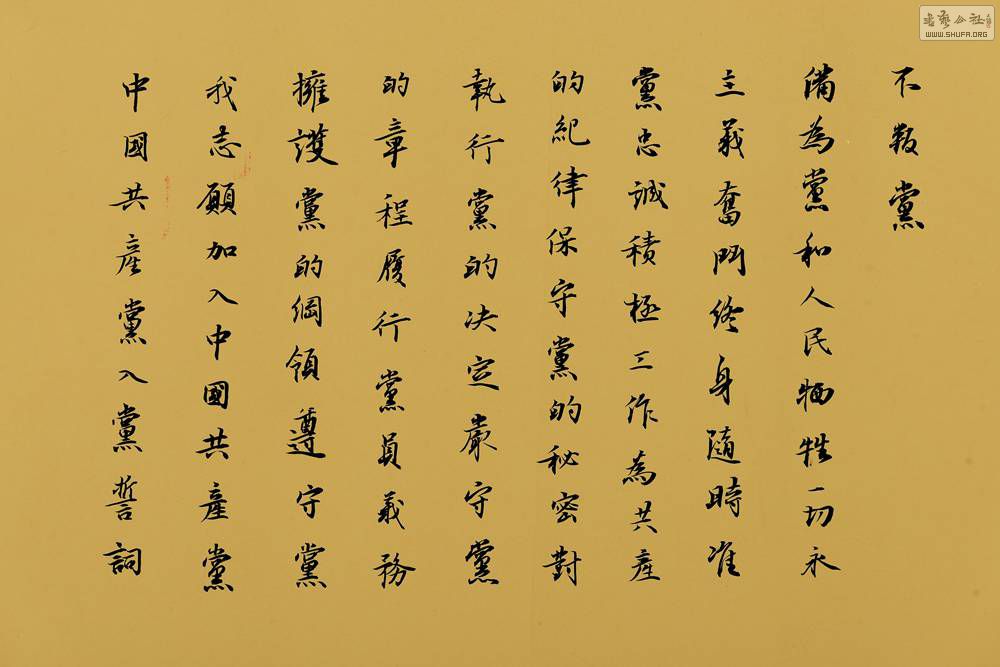 中國共産黨入黨誓詞
我志願加入中國共産黨
擁護黨的綱領遵守黨
的章程履行黨員義務
執行黨的决定嚴守黨
的紀律保守黨的秘密對
黨忠誠積極工作為共産
主義奮鬥終身隨時准
備為黨和人民牺牲一切永
不叛黨
書藝公社
WWW.SHUFA.ORG